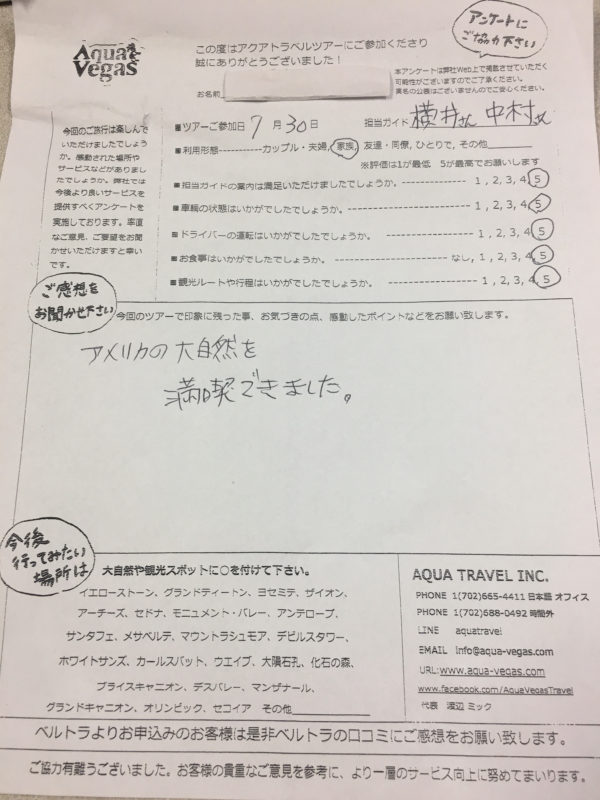 Aqua
Vegas
この度はアクアトラベルツアーにご参加くださり
誠にありがとうございました！
アンケートに
ご協力下さい
本アンケートは弊社Web上で掲載させていただく
可能性がございますのでご了承ください。
実名の公表はございませんのでご安心ください。
お名前
今回のご旅行は楽しんで
いただけましたでしょう
か。感動された場所や
サービスなどがありまし
たでしょうか。弊社では
今後より良いサービスを
提供すべくアンケートを
実施しております。率直
なご意見、ご要望をお聞
かせいただけますと幸い
です。
■ツアーご参加日 7 月 30日 担当ガイド 横井さん 中村さん
■利用形態-----------カップル・夫婦, 家族, 友達・同僚, ひとりで, その他
※評価は1が最低 5が最高でお願いします
■担当ガイドの案内は満足いただけましたでしょうか。 1, 2, 3, 4, 5
■車輌の状態はいかがでしたでしょうか。 1, 2, 3, 4, 5
■ドライバーの運転はいかがでしたでしょうか。 1, 2, 3, 4, 5
■お食事はいかがでしたでしょうか。 なし, 1, 2, 3, 4, 5
■観光ルートや行程はいかがでしたでしょうか。 1, 2, 3, 4, 5
ご感想を
お聞かせ下さい
今回のツアーで印象に残った事、お気づきの点、感動したポイントなどをお願い致します。
アメリカの大自然を
満喫できました。
今後
行ってみたい
場所は
大自然や観光スポットに○を付けて下さい。
イエローストーン、グランドティートン、ヨセミテ、ザイオン、
アーチーズ、セドナ、モニュメント・バレー、アンテロープ、
サンタフェ、メサベルデ、マウントラシュモア、デビルスタワー、
ホワイトサンズ、カールスバット、ウエイブ、大隕石孔、化石の森、
ブライスキャニオン、デスバレー、マンザナール、
グランドキャニオン、オリンピック、セコイア その他
AQUA TRAVEL INC.
PHONE 1(702)665-4411 日本語 オフィス
PHONE 1(702)688-0492 時間外
LINE aquatravel
EMAIL info@aqua-vegas.com
URL:www.aqua-vegas.com
www.facebook.com/AquaVegasTravel
代表 渡辺 ミック
ベルトラよりお申込みのお客様は是非ベルトラの口コミにご感想をお願い致します。
ご協力有難うございました。お客様の貴重なご意見を参考に、より一層のサービス向上に努めてまいります。